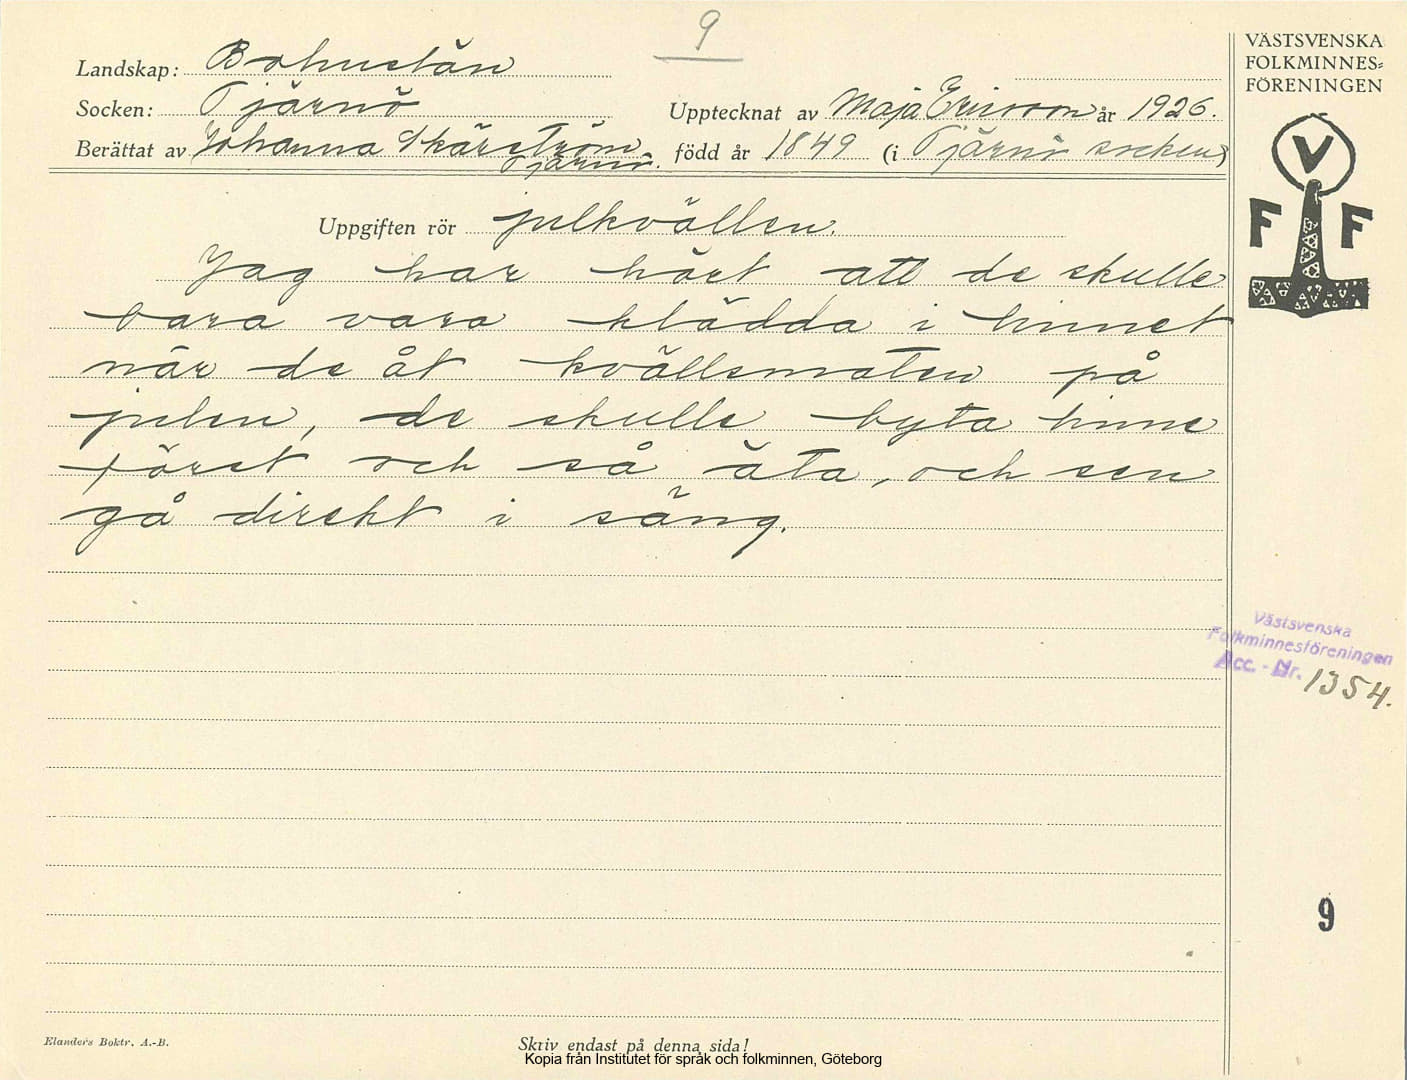 9
Landskap: Bohuslän
Socken: Tjärnö
Upptecknat av Maja Ericson år 1926.
Berättat av Johanna Skärström
Tjärnö.
född år 1849 (i Tjärnö socken)
Uppgiften rör julkvällen.
Jag har hört att de skulle
bara vara klädda i linnet
när de åt kvällsmaten på
julen, de skulle byta linne
först och så äta, och sen
gå direkt i säng.
VÄSTSVENSKA
FOLKMINNES=
FÖRENINGEN
V
F F
Västsvenska
Folkminnesföreningen
Acc. - Nr. 1354.
9
Elanders Boktr. A.-B.
Skriv endast på denna sida!
Kopia från Institutet för språk och folkminnen, Göteborg